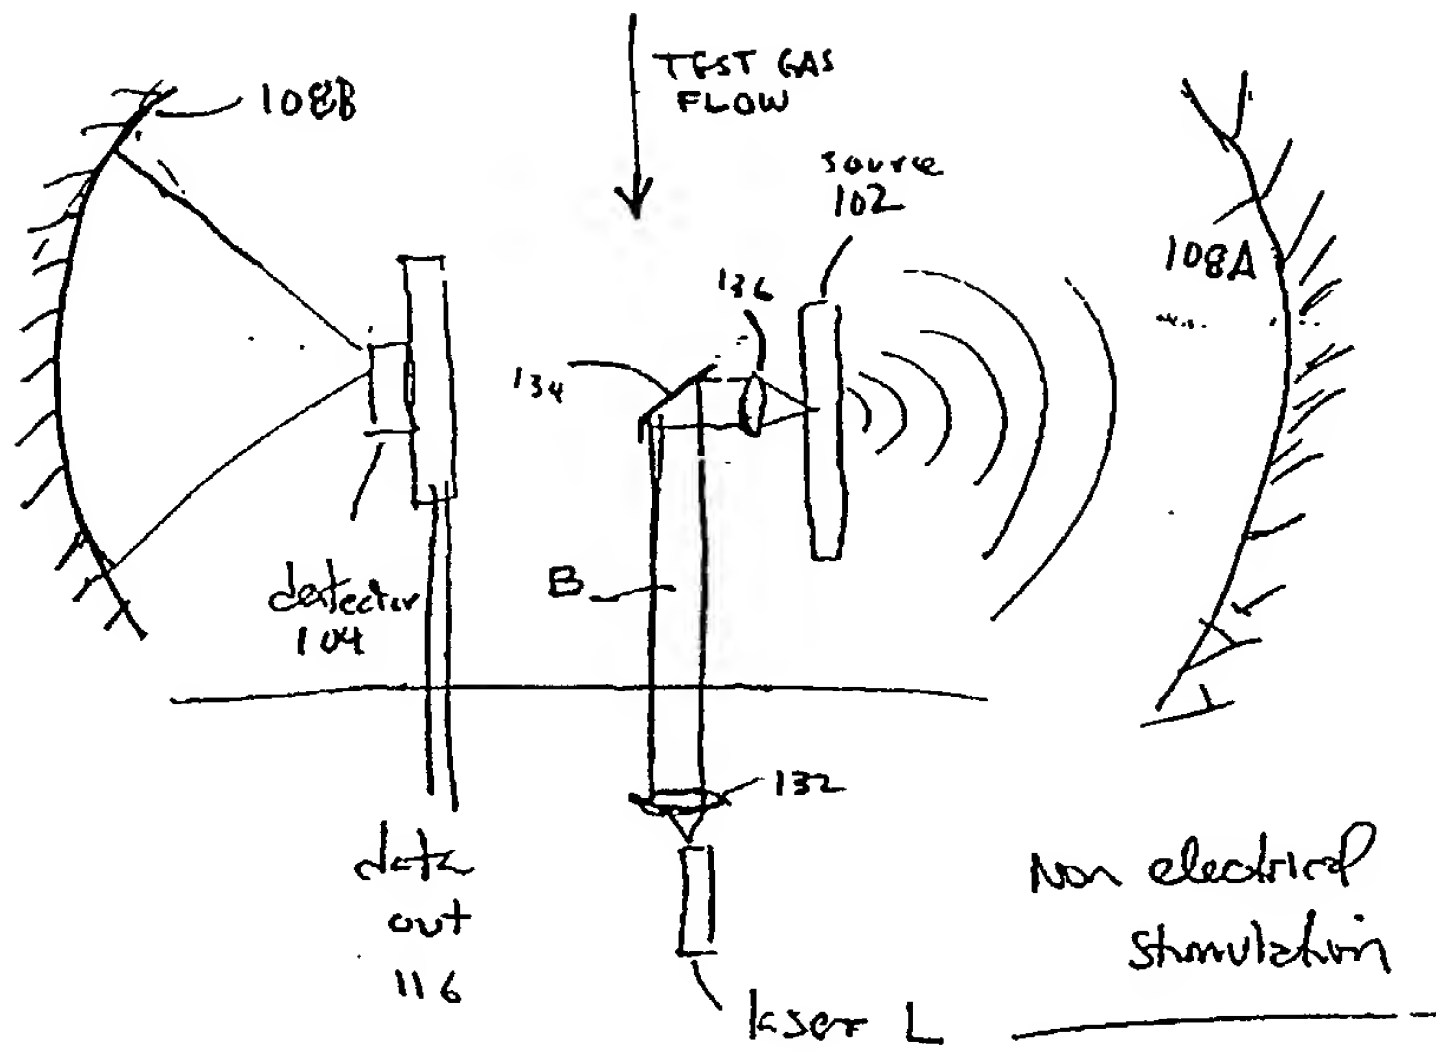 108B
TEST GAS
FLOW
source
102
108A
136
134
detector
104
B
132
data
out
116
laser L
Non electrical
stimulation